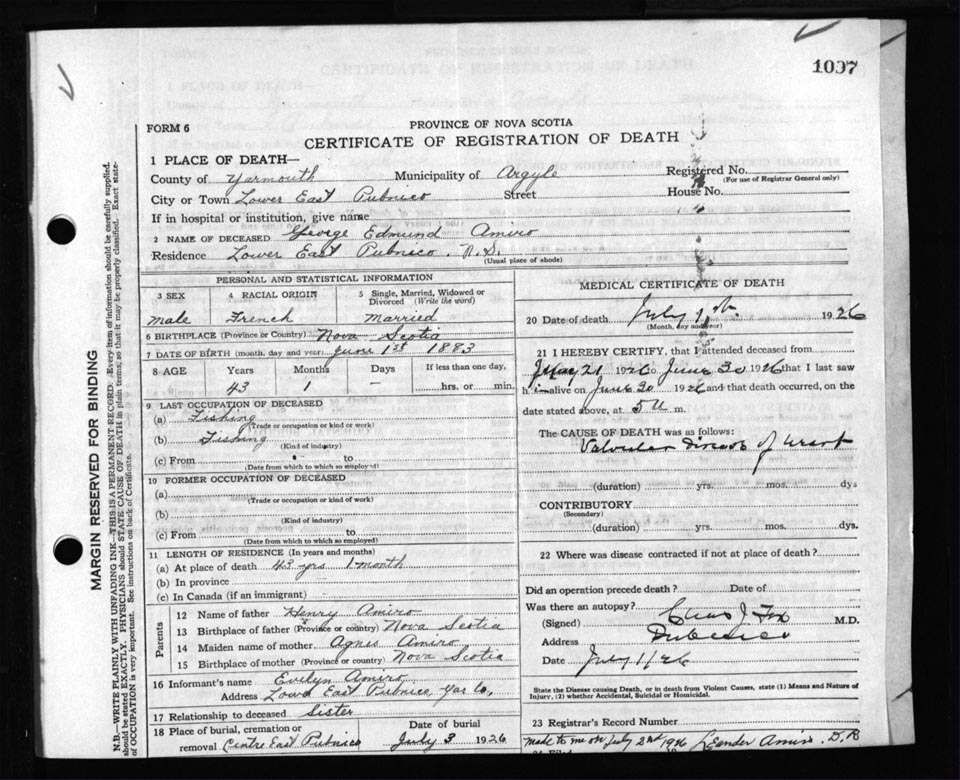 1037
FORM 6
PROVINCE OF NOVA SCOTIA
CERTIFICATE OF REGISTRATION OF DEATH
1 PLACE OF DEATH—
County of Yarmouth Municipality of Argyle Registered No.
(For use of Registrar General only)
City or Town Lower East Pubnico Street House No.
If in hospital or institution, give name
2 NAME OF DECEASED George Edmund Amiro
Residence Lower East Pubnico. N.S.
(Usual place of abode)
PERSONAL AND STATISTICAL INFORMATION
3 SEX 4 RACIAL ORIGIN 5 Single, Married, Widowed or Divorced (Write the word)
male French Married
6 BIRTHPLACE (Province or Country) Nova Scotia
7 DATE OF BIRTH (month, day and year) June 1st 1883
8 AGE Years Months Days If less than one day,
43 1 — hrs. or min.
9 LAST OCCUPATION OF DECEASED
(a) Fishing
(Trade or occupation or kind or work)
(b) Fishing
(Kind of industry)
(c) From to
(Date from which to which so employed)
10 FORMER OCCUPATION OF DECEASED
(a)
(Trade or occupation or kind of work)
(b)
(Kind of industry)
(c) From to
(Date from which to which so employed)
11 LENGTH OF RESIDENCE (In years and months)
(a) At place of death 43 yrs 1 month
(b) In province
(c) In Canada (if an immigrant)
Parents
12 Name of father Henry Amiro
13 Birthplace of father (Province or country) Nova Scotia
14 Maiden name of mother Agnes Amiro
15 Birthplace of mother (Province or country) Nova Scotia
16 Informant's name Evelyn Amiro
Address Lower East Pubnico, Yar Co,
17 Relationship to deceased Sister
18 Place of burial, cremation or removal Centre East Pubnico Date of burial July 3 1926
MEDICAL CERTIFICATE OF DEATH
20 Date of death July 1st 1926
(Month, day and year)
21 I HEREBY CERTIFY, that I attended deceased from
21 1926 to June 20 1926 that I last saw
h im alive on June 20 1926 and that death occurred, on
date stated above, at 5 m.
The CAUSE OF DEATH was as follows:
Valvular disease of heart
(duration) yrs. mos. dys
CONTRIBUTORY
(Secondary)
(duration) yrs. mos. dys.
22 Where was disease contracted if not at place of death?
Did an operation precede death? Date of
Was there an autopsy?
(Signed) Chas J Fox M.D.
Address Pubnico
Date July 1/26
State the Disease causing Death, or in death from Violent Causes, state (1) Means and Nature of
Injury, (2) whether Accidental, Suicidal or Homicidal.
23 Registrar's Record Number
made to me on July 2nd 1926 Leander Amiro. D.R
MARGIN RESERVED FOR BINDING
N.B.—WRITE PLAINLY WITH UNFADING INK—THIS IS A PERMANENT RECORD. Every item of information should be carefully supplied.
should be stated EXACTLY. PHYSICIANS should STATE CAUSE OF DEATH in plain terms, so that it may be properly classified. Exact state-
of OCCUPATION is very important. See instructions on back of Certificate.